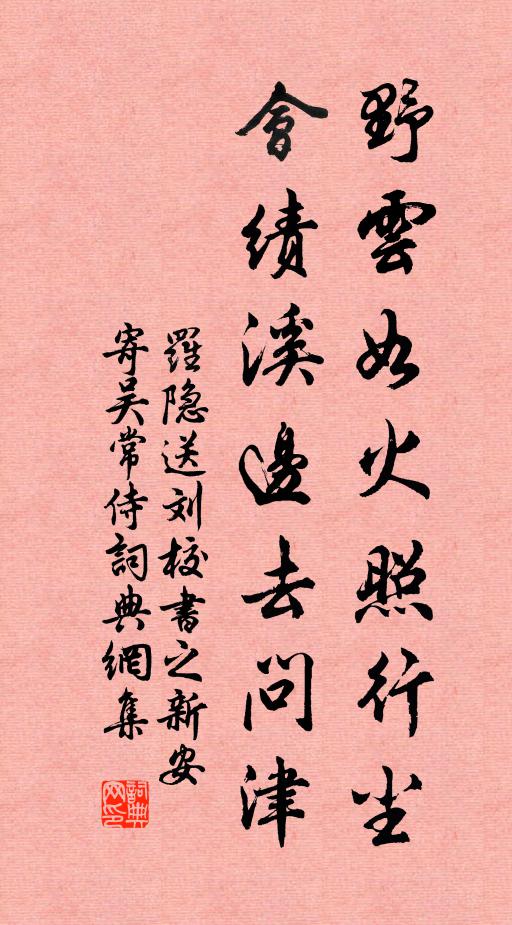 野雲如火照行尘
會績溪邊去問津
羅隐送刘校書之新安
寄吴常侍詞典網集
詞典网印